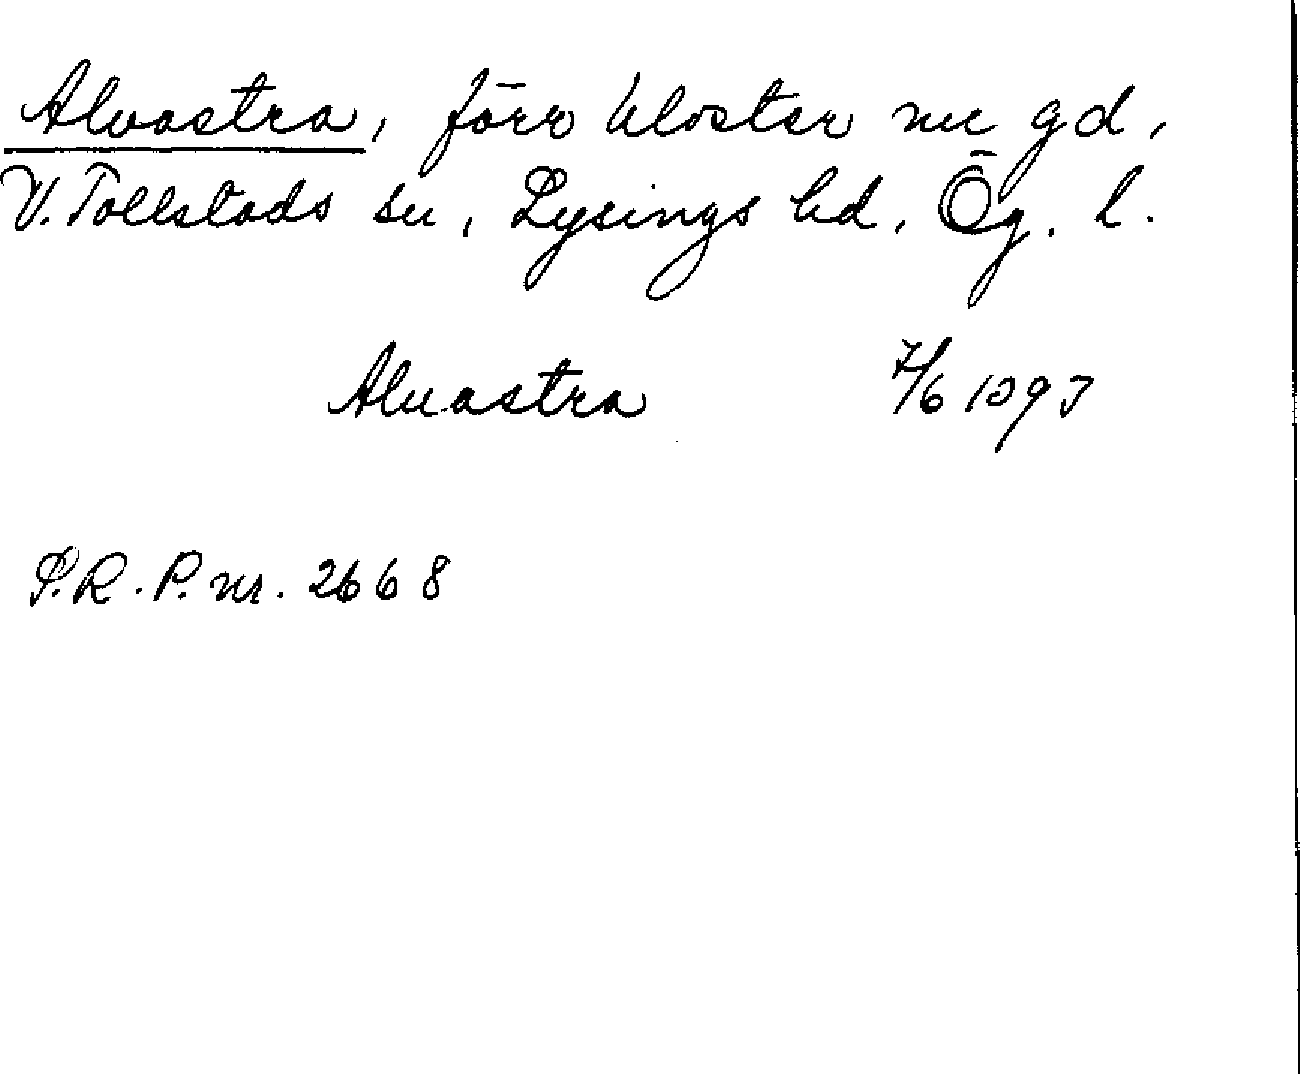 Alvastra, förr kloster nu gd,
V. Tollstads sn, Lysings hd, Ög. l.
Aluastra 7/6 1393
S.R.P. nr. 2668